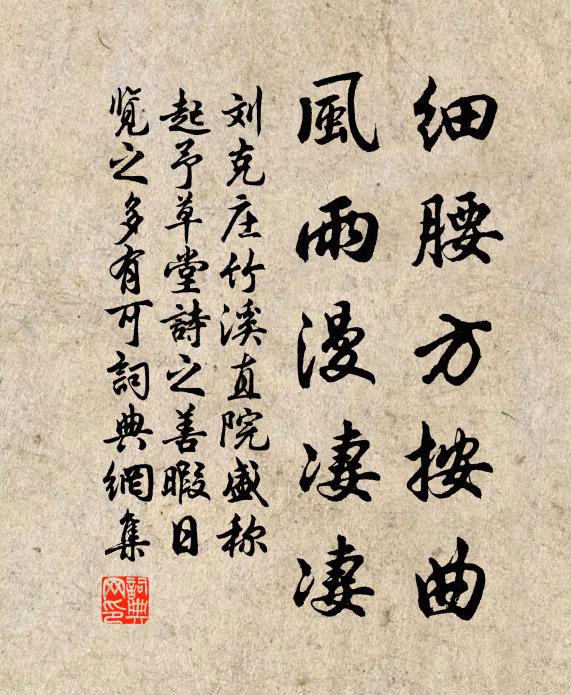 細腰方按曲
風雨漫凄凄
刘克庄竹溪直院盛称
起予草堂詩之善暇日
覧之多有可詞典網集
詞典网印